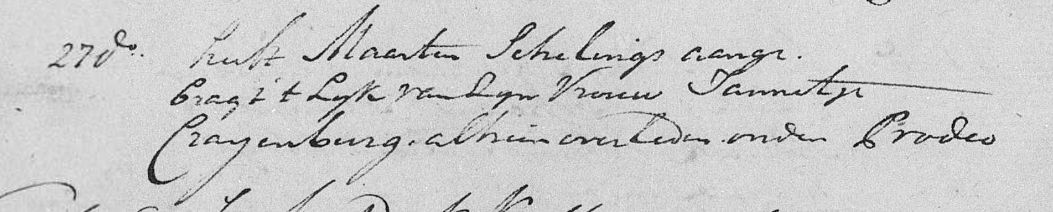 27do. heeft Maarten Schelings aange.
bragt t Lyk van Zyn Vrouw Jannetje
Crayenburg. alhier overleden onder Prodeo